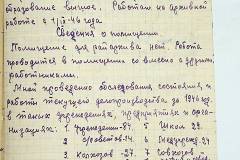 образование высшее. Работает на архивной
работе с 1/II-46 года
Сведения о помещении
Помещение для райархива нет. Работа
проводится в помещении совместно с другими
работниками.
Мной проведено обследование состояния
работы текущего делопроизводства за 1946 год
в таких учреждениях, предприятиях и орга-
низациях: 1 Учреждений-24. 5 Школ 29
2 с/советов-14. 6
3 Колхозов -27. 7 Совхозов